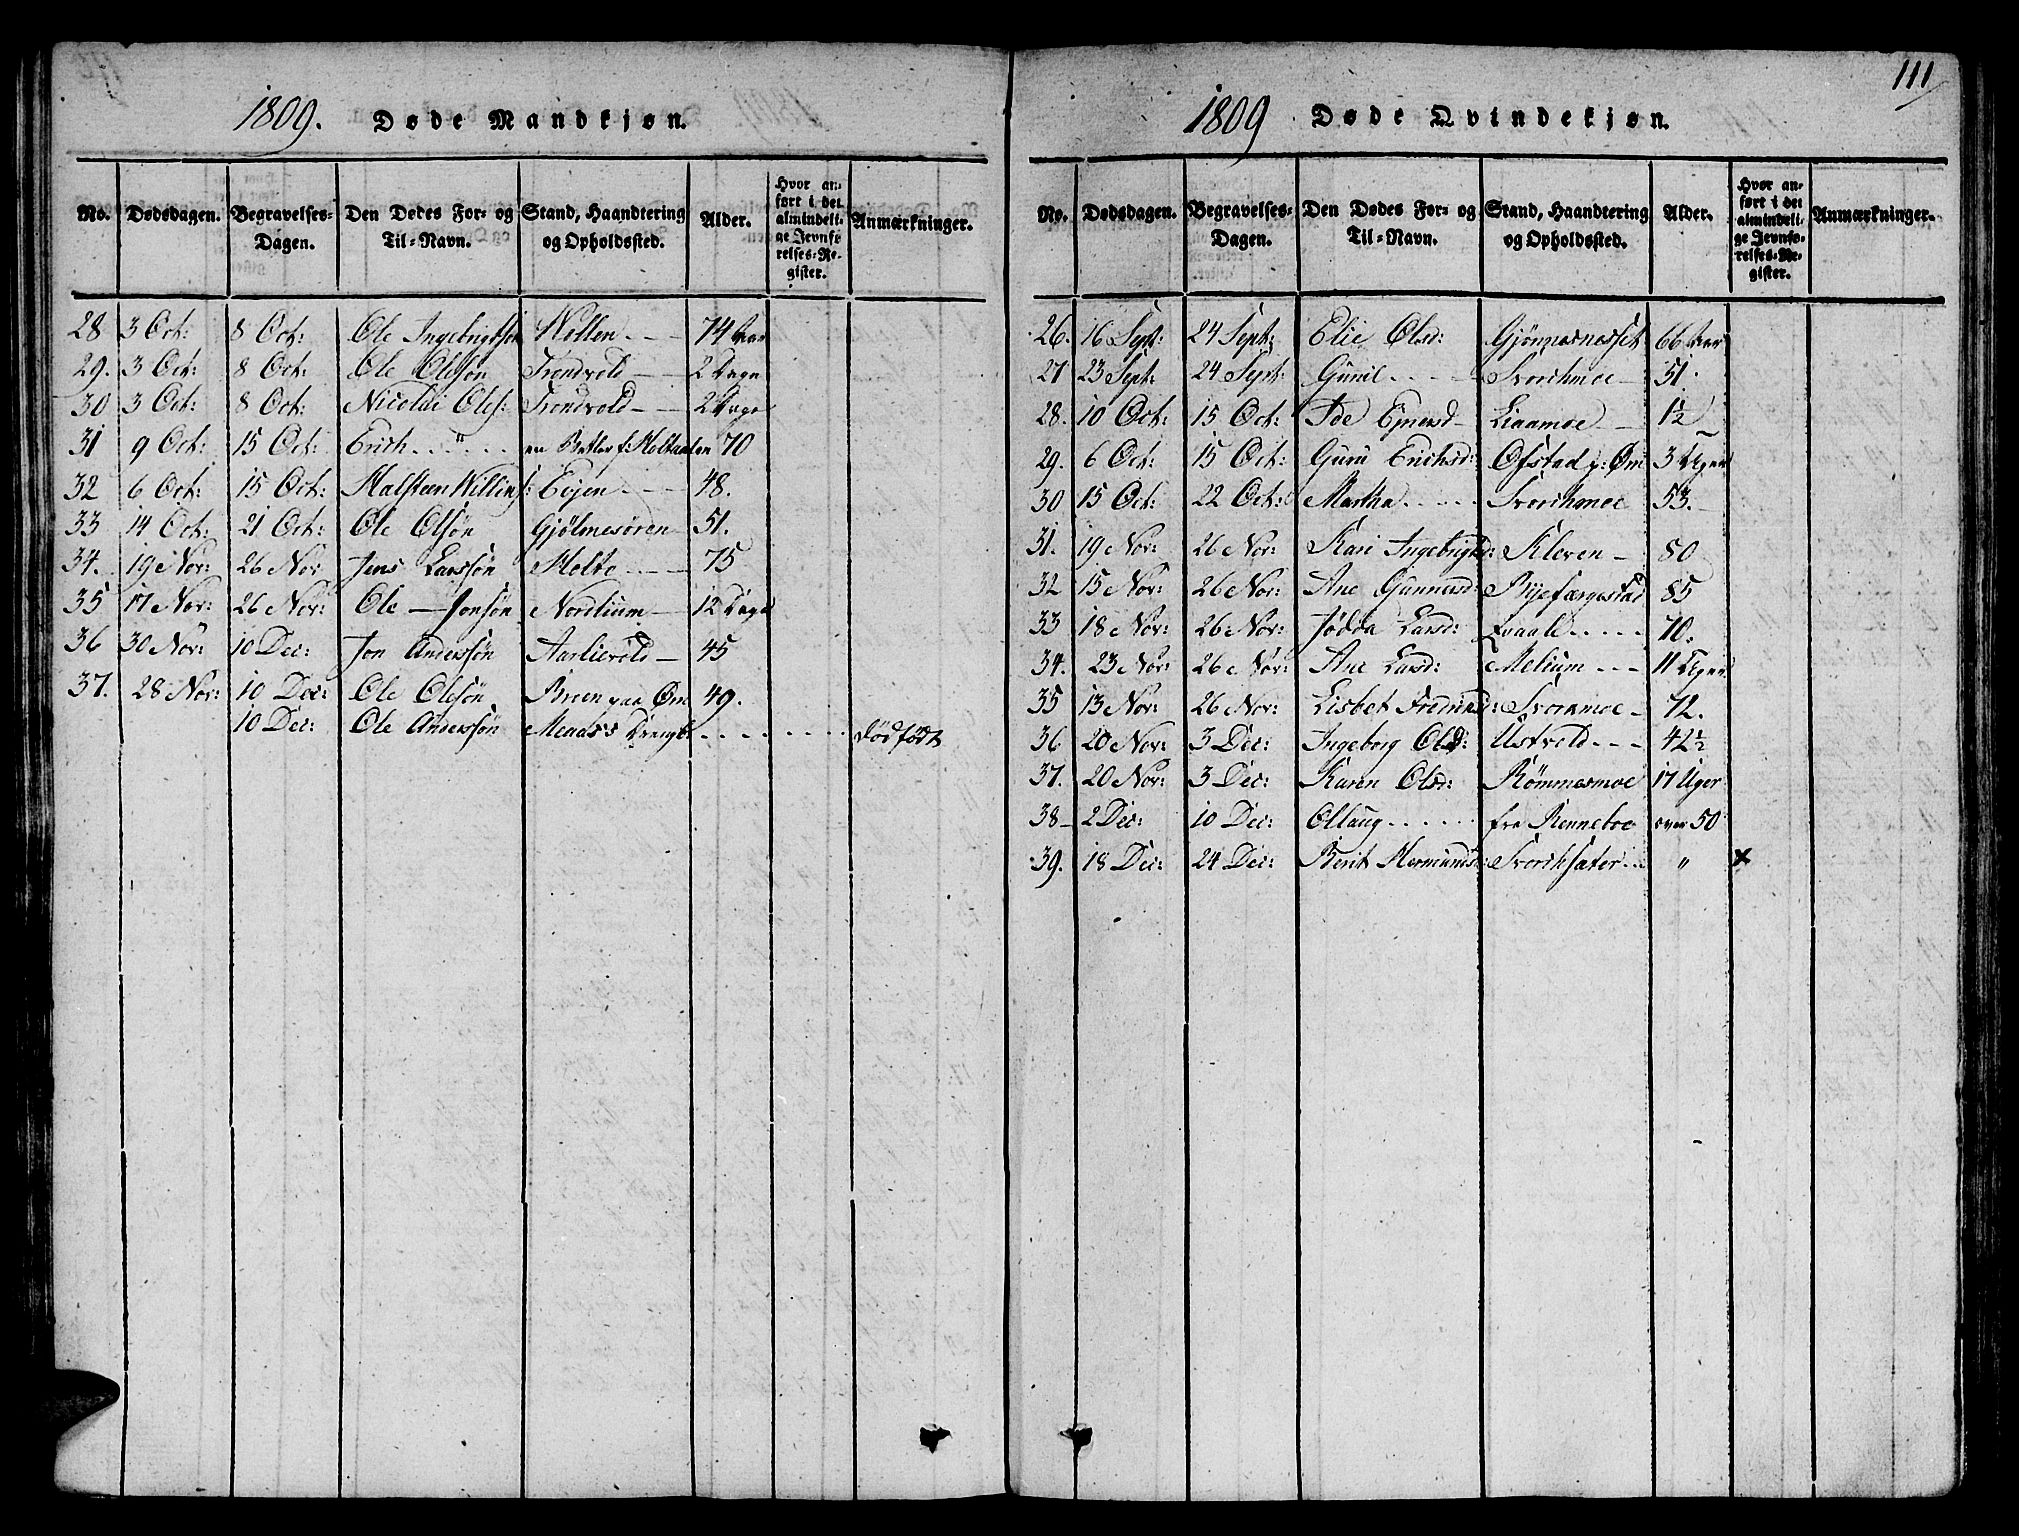 111
1809. Døde Mandkjøn.
No. Dødsdagen. Begravelses-Dagen. Den Dødes For- og Til-Navn. Stand, Haandtering og Opholdssted. Alder. Hvor anført i det almindelige Jevnførelses-Register. Anmærkninger.
28 3 Oct: 8 Oct: Ole Ingebrigtsøn Hollen - - 74 Aar
29. 3 Oct: 8 Oct: Ole Olesøn Trondvold - - 2 Dage
30 3 Oct: 8 Oct: Nicolai Oles: Trondvold - - 2 Dage
31 9 Oct: 15 Oct: Erich . . " . . en Betler f: Holtaalen 70
32 6 Oct: 15 Oct: Halsteen Willins: Eojen - - - 48.
33 14 Oct: 21 Oct: Ole Olsøn Gjølmesøren 51.
34. 19 Nov: 26 Nov Jens Larssøn Molte - - - 75
35 17 Nov: 26 Nov: Ole — Jonsøn Nordium - 12 Dage
36 30 Nov: 10 Dec: Jon Anderssøn Aarlivold - 45
37. 28 Nov: 10 Dec: Ole Olesøn Breen paa Øm 49.
10 Dec: Ole Anderssøn Meaass . . . . . . . dødfødt
1809 Døde Qvindekjøn.
No. Dødsdagen. Begravelses-Dagen. Den Dødes For- og Til-Navn. Stand, Haandtering og Opholdssted. Alder. Hvor anført i det almindelige Jevnførelses-Register. Anmærkninger.
26. 16 Sept: 24 Sept: Elie Olsd: Gjønnesnesset 66 Aar
27 23 Sept: 24 Sept: Guril . . - - Svorchmoe - 51.
28. 10 Oct: 15 Oct: Ide Ejnersd - Liaamoe - - 1½
29. 6 Oct: 15 Oct: Guru Erichsd: Ofstad p: Øm 3 Uger
30 15 Oct: 22 Oct: Martha . . . . . Svorchmoe 53.
31. 19 Nov: 26 Nov: Kari Ingebrigtsd: Kleven - 80
32 15 Nov: 26 Nov: Ane Gunnersd: Byefærgestad 85
33 18 Nov: 26 Nov: Jødda Larsd: Qvaale . . . . . 70.
34. 23 Nov: 26 Nov: Ane Larsd: Melium - - - 11 Uger
35 13 Nov: 26 Nov: Lisbet Fredriksd: Svorkmoe - 72.
36 20 Nov: 3 Dec: Ingeborg Olsd: Ustvold - - - 42½
37. 20 Nov: 3 Dec: Karen Olsd: Rømmesmoe 17 Uger
38- 2 Dec: 10 Dec: Ollaug . . . . . . fra Renneboe over 50
39. 18 Dec: 24 Dec: Berit Hermunds: Svorchsæter . . . " x